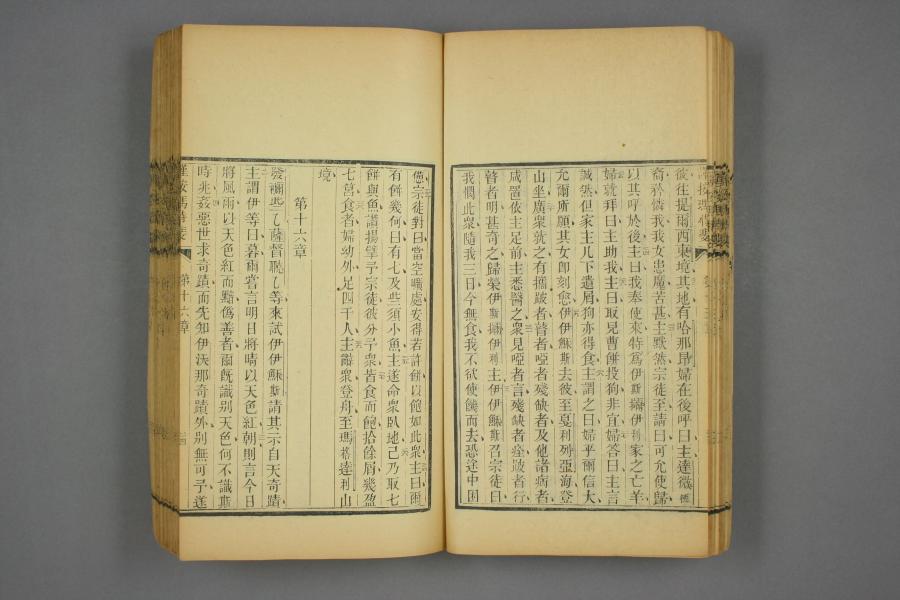 彼往提爾西頓境其地有哈那昂婦在後呼曰主達微
裔矜憐我我女患魔苦甚主默然宗徒至請曰可允使歸
以其呼於後主曰我奉使來特爲伊斯攝伊利家之亡羊
婦就拜曰主助我主曰取兒曹餅投狗非宜婦答曰主言
誠然但家主几下遺屑狗亦得食主謂之曰婦乎爾信大
允爾所願其女卽刻愈伊伊穌斯去彼至戛利列亞海登
山坐廣衆就之有攜跛者瞽者啞者殘缺者及他諸病者
咸置依主足前主悉醫之衆見啞者言殘缺者痊跛者行
瞽者明甚奇之歸榮伊斯攝伊利主伊伊穌斯召宗徒曰
我憫此衆隨我三日今無食我不欲使饑而去恐途中困
憊宗徒對曰當空曠處安得若許餅以飽如此衆主曰爾
有餅幾何曰有七及些須小魚主遂命衆臥地己乃取七
餅與魚讚揚擘予宗徒徒分予衆皆食而飽拾餘屑幾盈
七筥食者婦幼外足四千人主辭衆登舟至瑪 達利山
境
第十六章
發 些乙薩督 乙等來試伊伊穌斯請其示自天奇蹟
主謂伊等曰暮爾嘗言明日將晴以天色紅朝則言今日
將風雨以天色紅而黯僞善者爾旣識別天色何不識斯
時兆姦惡世求奇蹟而先知伊沃那奇蹟外別無可予遂
第十六章